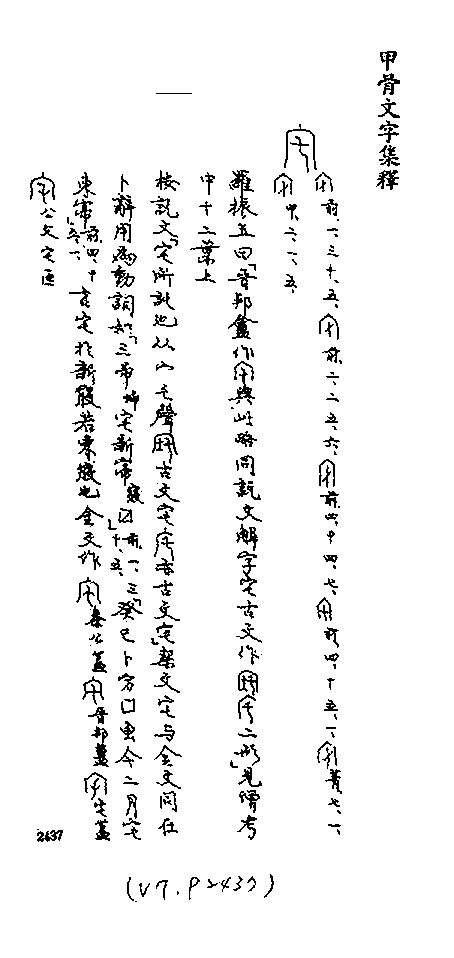 甲骨文字集釋
宅
前、一、三十、五、 前、二、二五、六、 前、四、十四、七、 前、四、十五、一、 菁、七、一、
甲、二、一、五、
羅振玉曰「晉邦盦作 與此略同說文解字宅古文作 二形」見增考
中十二葉上
按說文「宅所託也从宀乇聲 古文宅 亦古文宅」契文宅与金文同在
卜辭用為動詞如「三帚 宅新寢 前、一、三十、五、」「癸巳卜 今二月宅
東寢」前、四、十五、一、言宅於新寢若東寢也金文作 秦公簋 晉邦盦 宅簋
公父宅匜
2437
(V7.P2437)